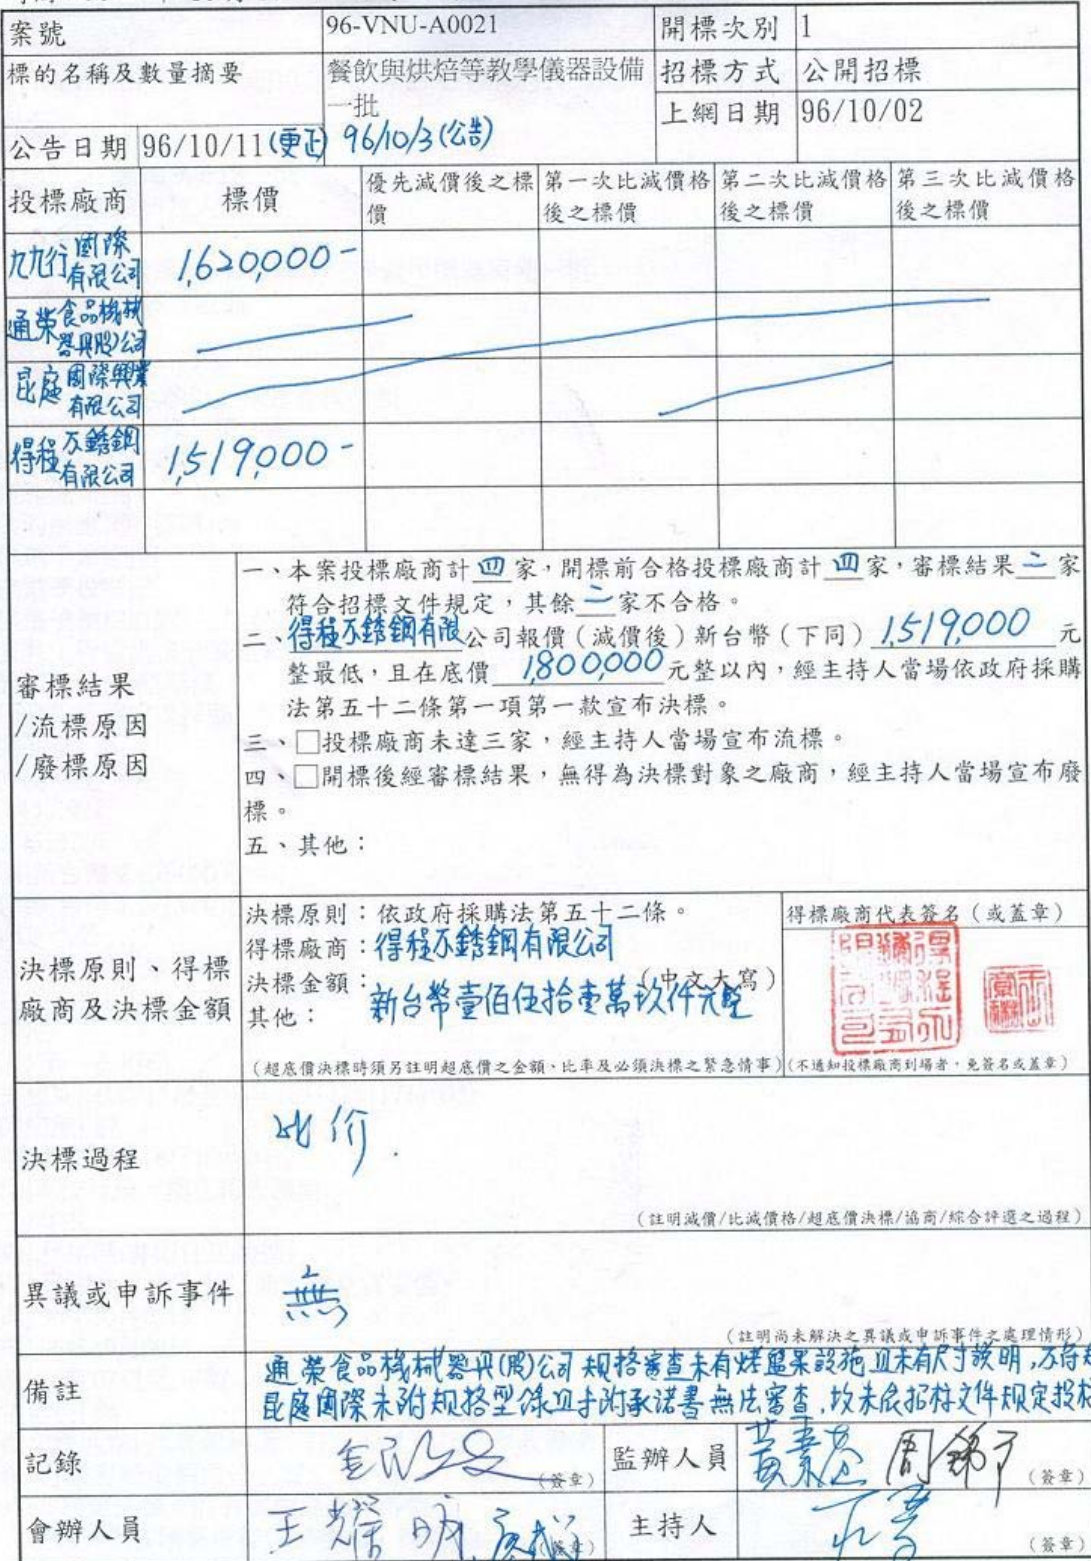 案號 96-VNU-A0021 開標次別 1
標的名稱及數量摘要 餐飲與烘焙等教學儀器設備一批 招標方式 公開招標
上網日期 96/10/02
公告日期 96/10/11(更正) 96/10/3(公告)
投標廠商 標價 優先減價後之標價 第一次比減價格後之標價 第二次比減價格後之標價 第三次比減價格後之標價
九九行國際有限公司 1,620,000-
通榮食品機械器具(股)公司
昆庭國際興業有限公司
得程不銹鋼有限公司 1,519,000-
審標結果
/流標原因
/廢標原因
一、本案投標廠商計四家,開標前合格投標廠商計四家,審標結果二家
符合招標文件規定,其餘二家不合格。
二、得程不銹鋼有限公司報價(減價後)新台幣(下同)1,519,000元
整最低,且在底價1,800,000元整以內,經主持人當場依政府採購
法第五十二條第一項第一款宣布決標。
三、□投標廠商未達三家,經主持人當場宣布流標。
四、□開標後經審標結果,無得為決標對象之廠商,經主持人當場宣布廢
標。
五、其他:
決標原則、得標
廠商及決標金額
決標原則:依政府採購法第五十二條。
得標廠商:得程不銹鋼有限公司
決標金額:新台幣壹佰伍拾壹萬玖仟元整(中文大寫)
其他:
(超底價決標時須另註明超底價之金額、比率及必須決標之緊急情事)
得標廠商代表簽名(或蓋章)
(不通知投標廠商到場者,免簽名或蓋章)
決標過程 比价.
(註明減價/比減價格/超底價決標/協商/綜合評選之過程)
異議或申訴事件 無
(註明尚未解決之異議或申訴事件之處理情形)
備註
通榮食品機械器具(股)公司規格審查未有烤盤架設施且未有尺寸說明,不符
昆庭國際未附規格型錄且未附承諾書無法審查,故未依招標文件規定投標
記錄 (簽章) 監辦人員 (簽章)
會辦人員 (簽章) 主持人 (簽章)